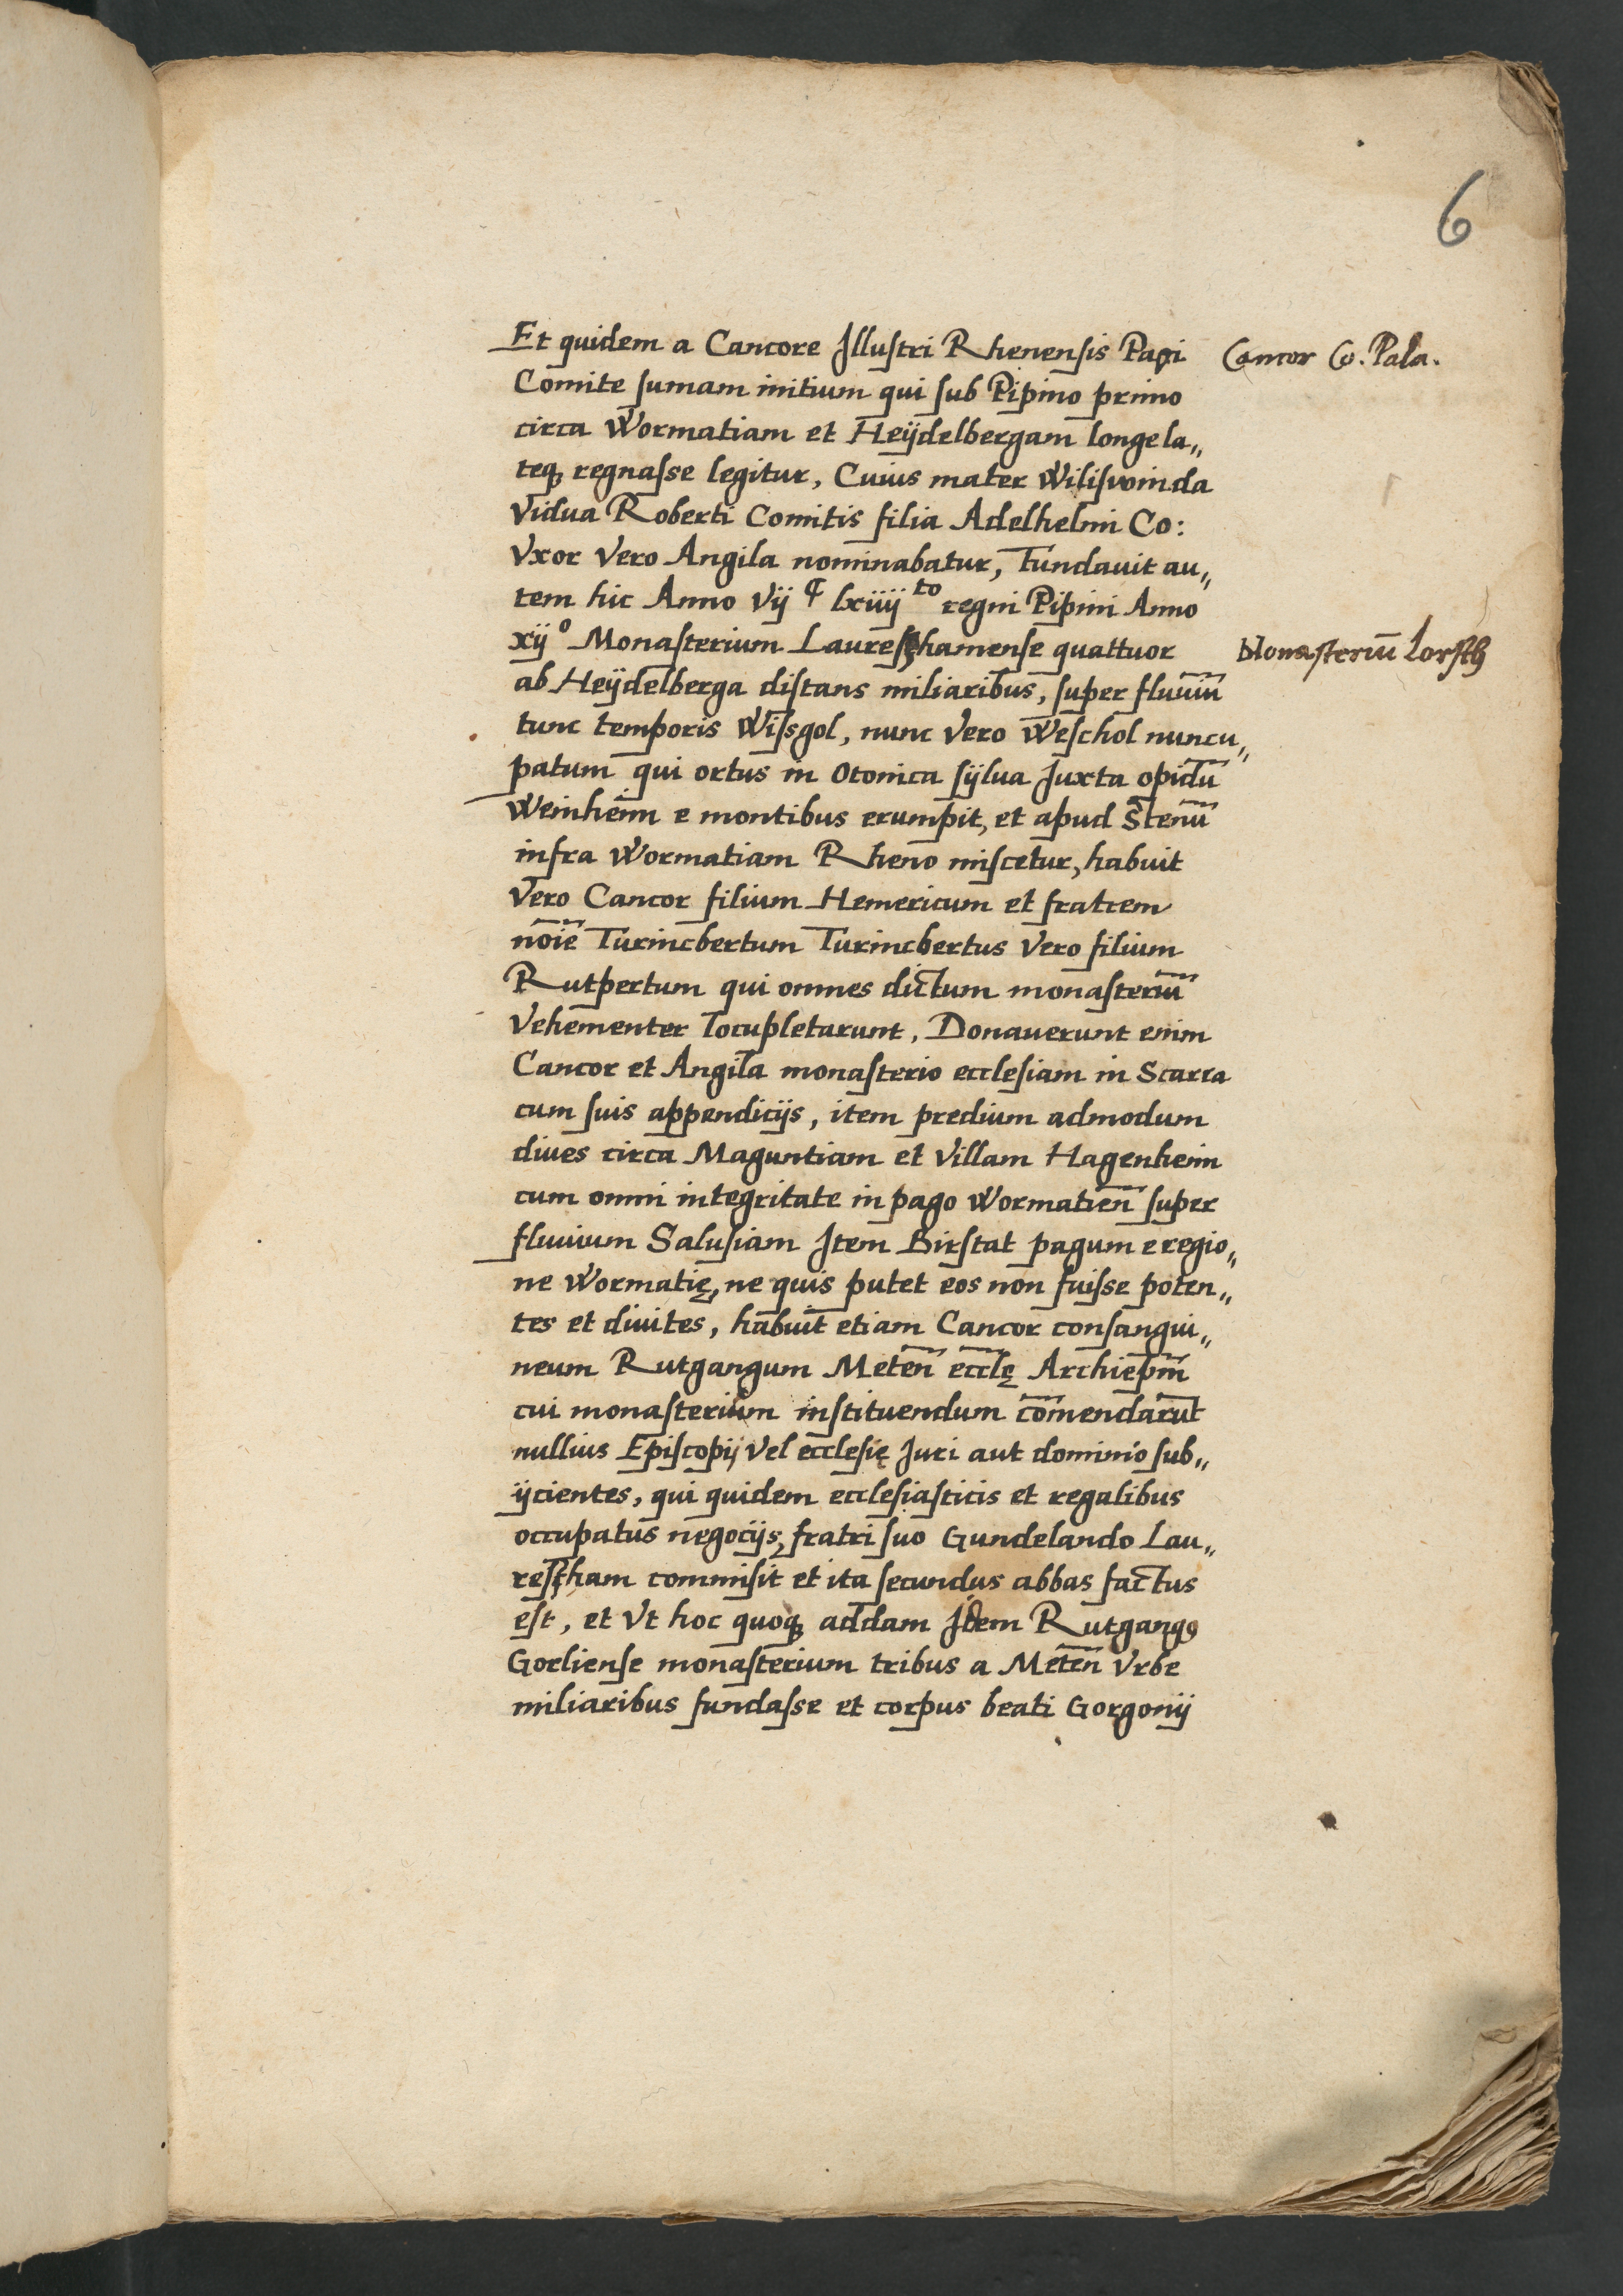 6
Et quidem a Cancore Illustri Rhenensis Pagi
Cancor Co. Pala.
Comite sumam initium qui sub Pipino primo
circa Wormatiam et Heÿdelbergam longe la„
teq₃ regnasse legitur, Cuius mater Wiliswinda
Vidua Roberti Comitis filia Adelhelmi Co:
Vxor Vero Angila nominabatur, Fundauit au„
tem hic Anno Vij ͨ lxiiij ᵗᵒ regni Pipini Anno
xij ᵒ Monasterium Laureschamense quattuor
Monasteriū Lorsch
ab Heÿdelberga distans miliaribus, super fluuiū
tunc temporis Wissgol, nunc Vero Weschol nuncu„
patum qui ortus in Otonica sÿlua Juxta opidū
Weinheim e montibus erumpit, et apud Stenū
infra Wormatiam Rheno miscetur, habuit
Vero Cancor filium Hemericum et fratrem
noīe Turincbertum Turincbertus Vero filium
Rutpertum qui omnes dictum monasteriū
Vehementer locupletarunt, Donauerunt enim
Cancor et Angila monasterio ecclesiam in Scarra
cum suis appendicijs, item predium admodum
diues circa Maguntiam et Villam Hagenheim
cum omni integritate in pago Wormatien̄ super
fluuium Salusiam Item Birstat pagum e regio„
ne Wormatię, ne quis putet eos non fuisse poten„
tes et diuites, habuit etiam Cancor consangui„
neum Rutgangum Meten̄ ecclę Archiepm̄
cui monasterium instituendum com̄endarūt
nullius Episcopij Vel ecclesię Juri aut dominio sub„
ijcientes, qui quidem ecclesiasticis et regalibus
occupatus negocijs, fratri suo Gundelando Lau„
rescham commisit et ita secundus abbas factus
est, et Vt hoc quoq₃ addam Idem Rutgangꝰ
Gorliense monasterium tribus a Meten̄ Vrbe
miliaribus fundasse et corpus beati Gorgonij